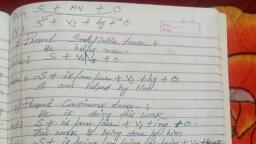 S + MV + O
S + V3 + by + O
Present Indefinite tense :
He helps me.
S + V1/V5 + O
S + is/am/are + V3 + by + O
I am helped by him.
Present Continuous tense :
He is doing this work
S + is/am/are + V1 + ing + O
This work is being done by him